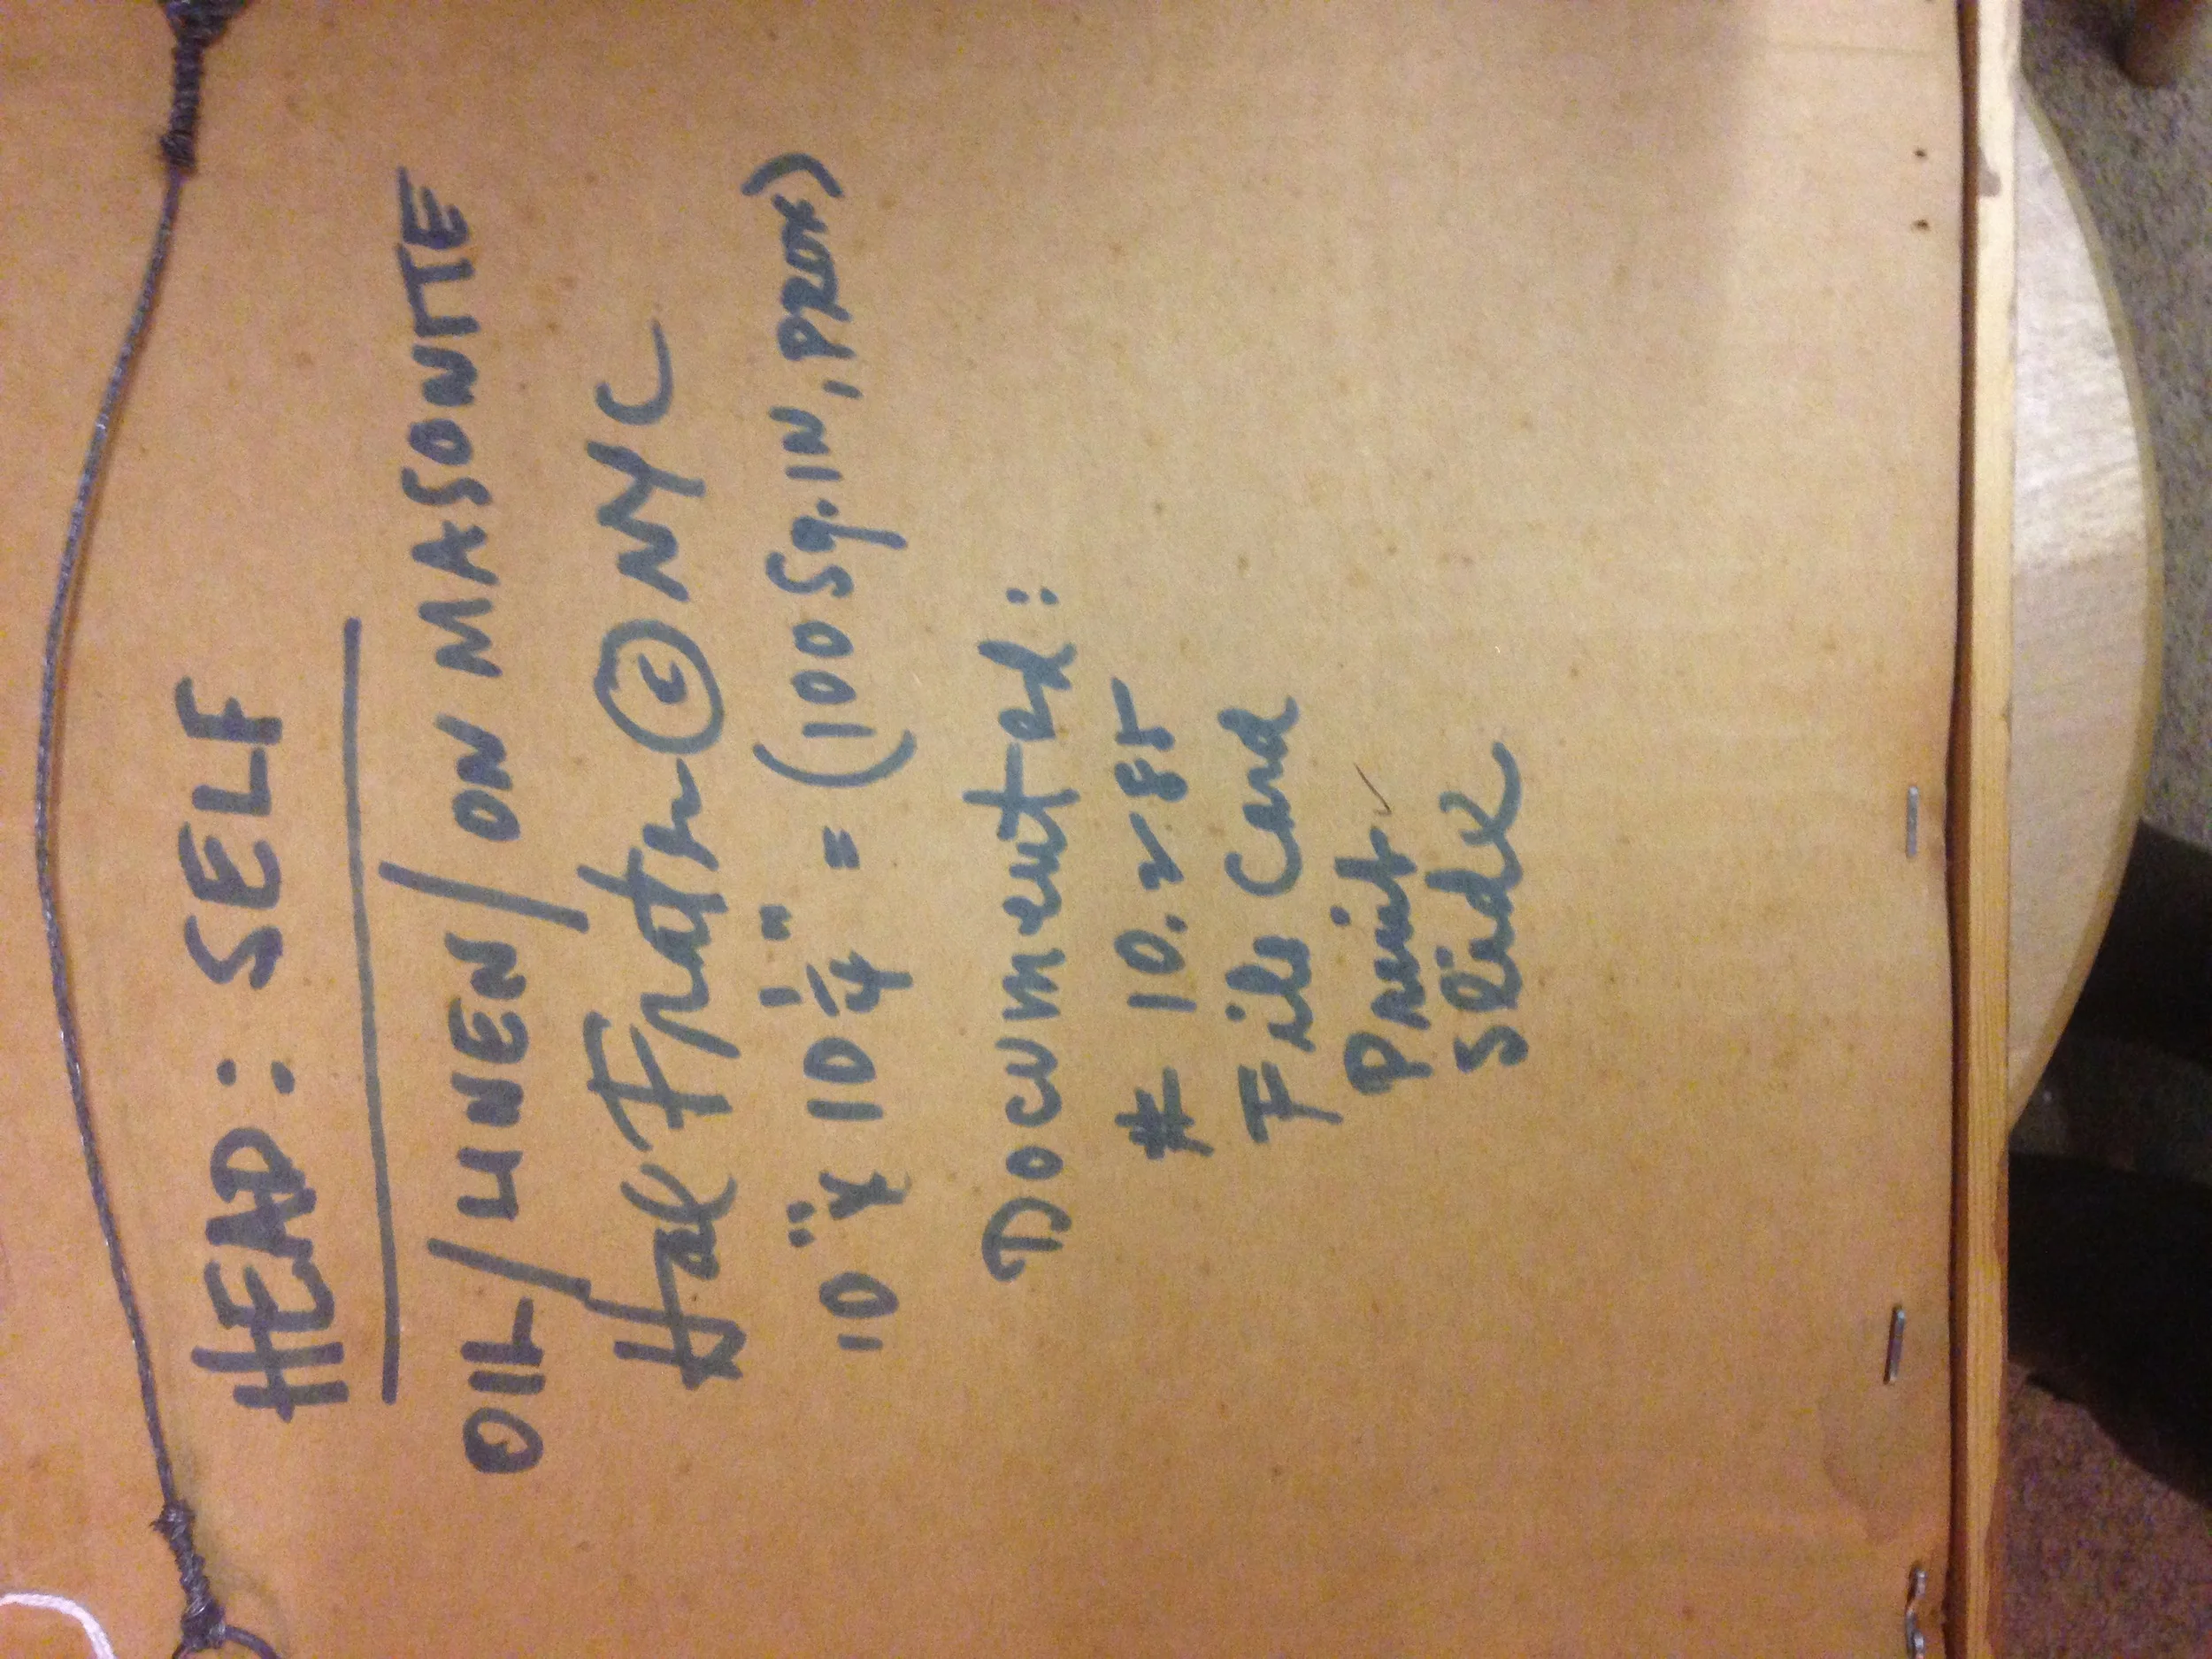 HEAD: SELF
OIL/LINEN/ON MASONITE
Hal Frater © NYC
10" x 10 1/4" = (100 Sq. IN, PROX)
Documented:
# 10.285
File Card
Print ✓
Slide